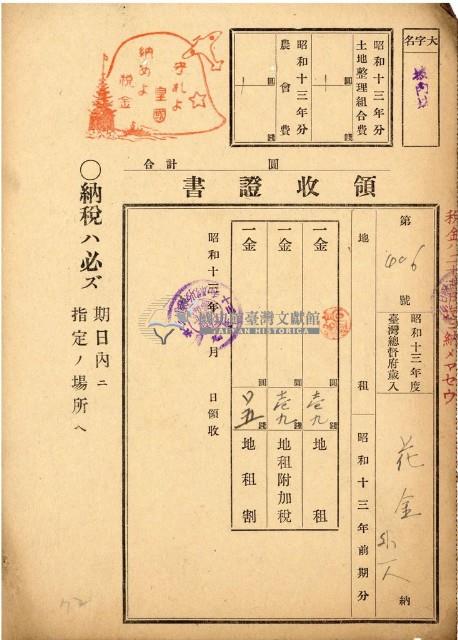 大字名
昭和十三年分
土地整理組合費
圓
錢
昭和十三年分
農會費
圓
錢
守れよ
皇國
納めよ
税金
合計 圓
領收證書
第 號
昭和十三年度
臺灣總督府歲入
地租
昭和十三年前期分
花金 外一人
納
一金 圓 壱九 錢 地租
一金 圓 壱九 錢 地租附加税
一金 圓 錢 地租割
昭和十三年 月 日領收
國史館臺灣文獻館
TAIWAN HISTORICA
○納税ハ必ズ
期日內ニ
指定ノ場所ヘ